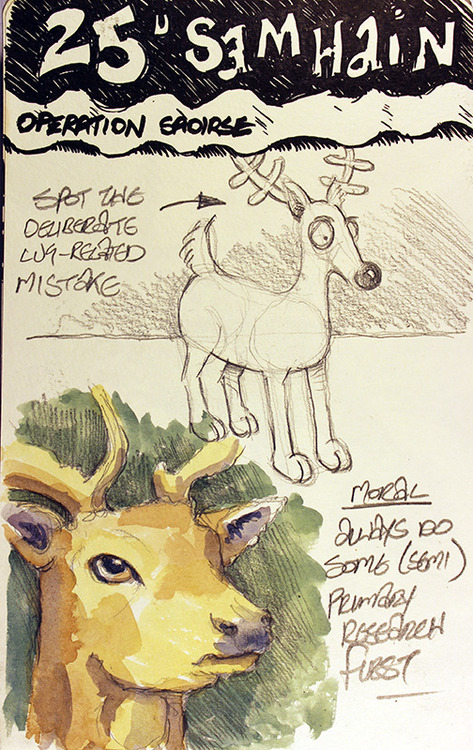 25U SaMHaiN
OPERATION SAOIRSE
SPOT THE
DELIBERATE
LUG-RELATED
MISTAKE
MORAL
ALWAYS DO
SOME (SEMI)
PRIMARY
RESEARCH
FIRST